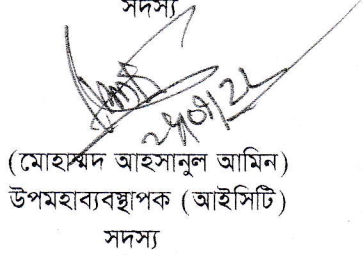 সদস্য
(মোহাম্মদ আহসানুল আমিন)
উপমহাব্যবস্থাপক (আইসিটি)
সদস্য